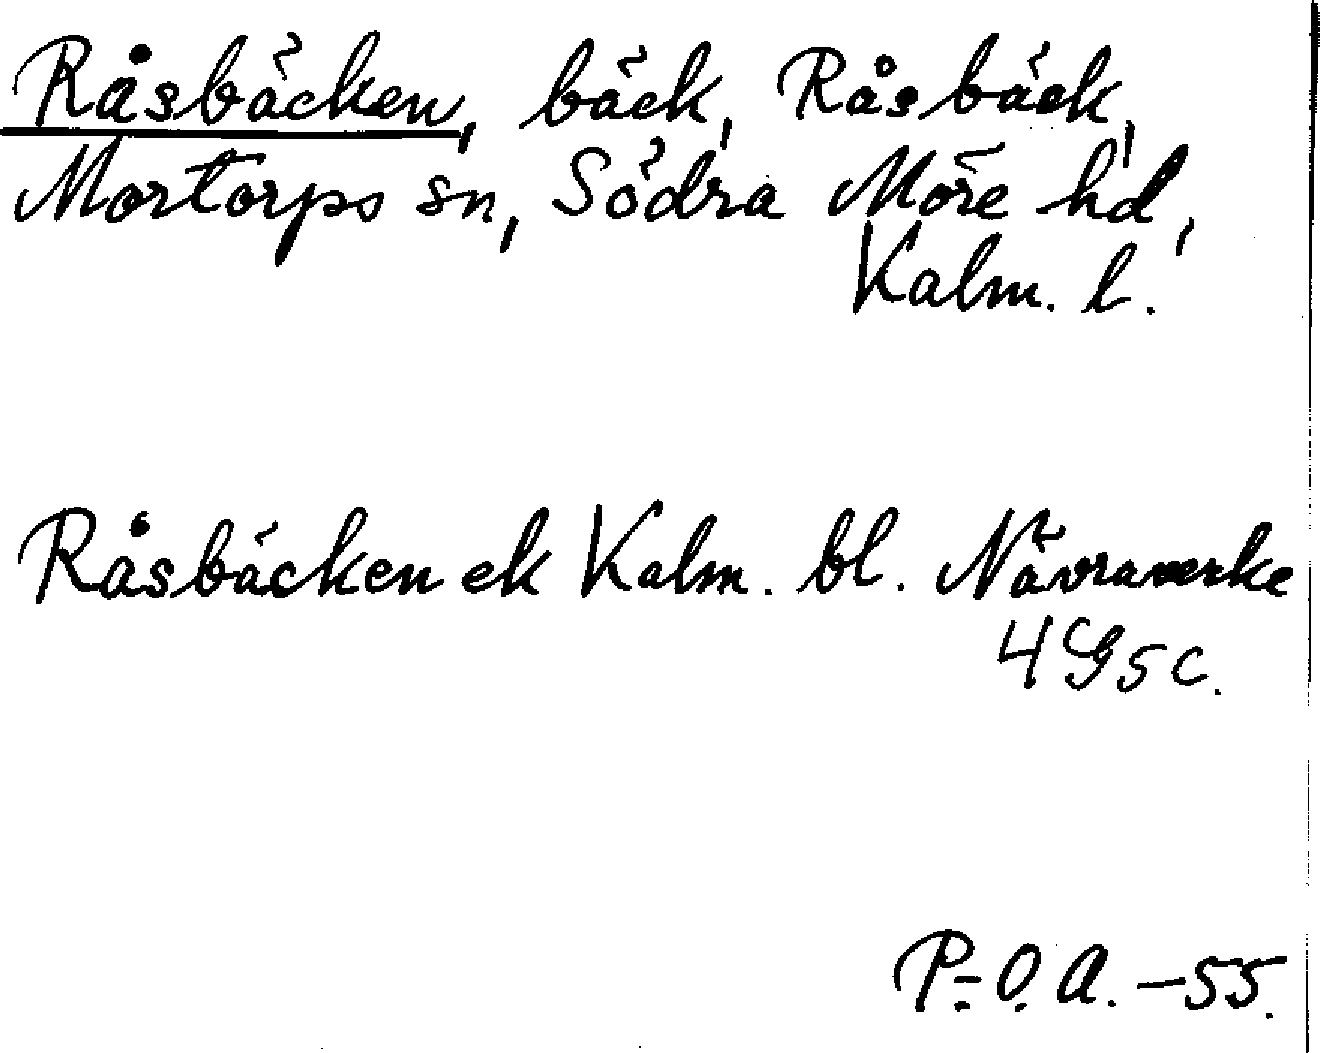 Råsbäcken, bäck, Råsbäck,
Mortorps sn, Södra Möre hd,
Kalm. l.
Råsbäcken ek Kalm. bl. Nävraverke
4G5c.
P.-O. A. -55.